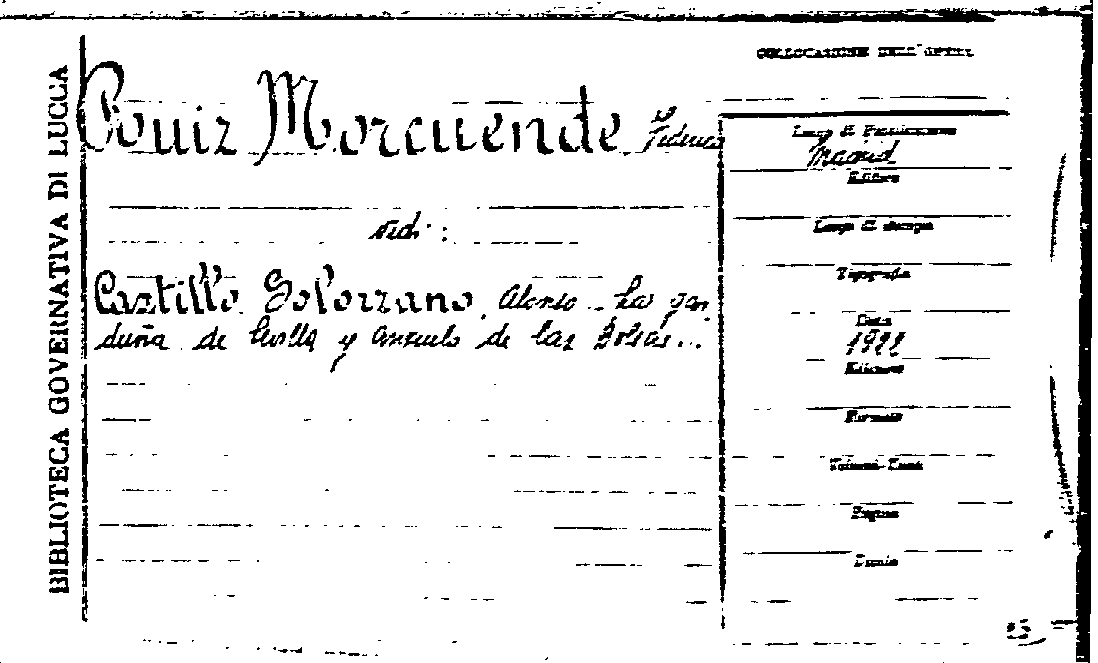 BIBLIOTECA GOVERNATIVA DI LUCCA
COLLOCAZIONE DELL'OPERA
Rouiz Morcuende Federico
Luogo di Pubblicazione
Madrid
Editore
Luogo di stampa
Tipografia
Data
1922
Edizione
Formato
Volumi-Tomi
Pagine
vedi:
Castillo Solorzano, Alonso. La gar
duña de Sevilla y anzuelo de las Bolsas...